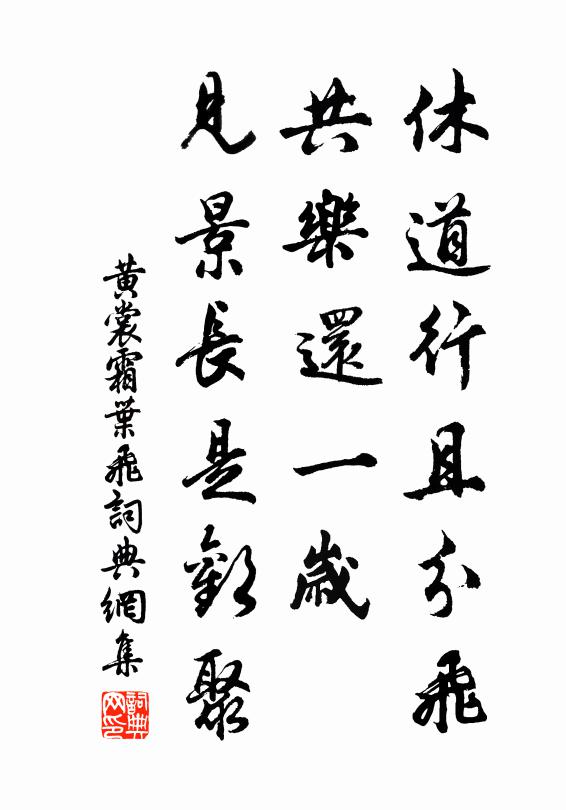 休道行且分飛
共樂還一歲
見景長是歡聚
黃裳霜葉飛詞典網集
詞典网印